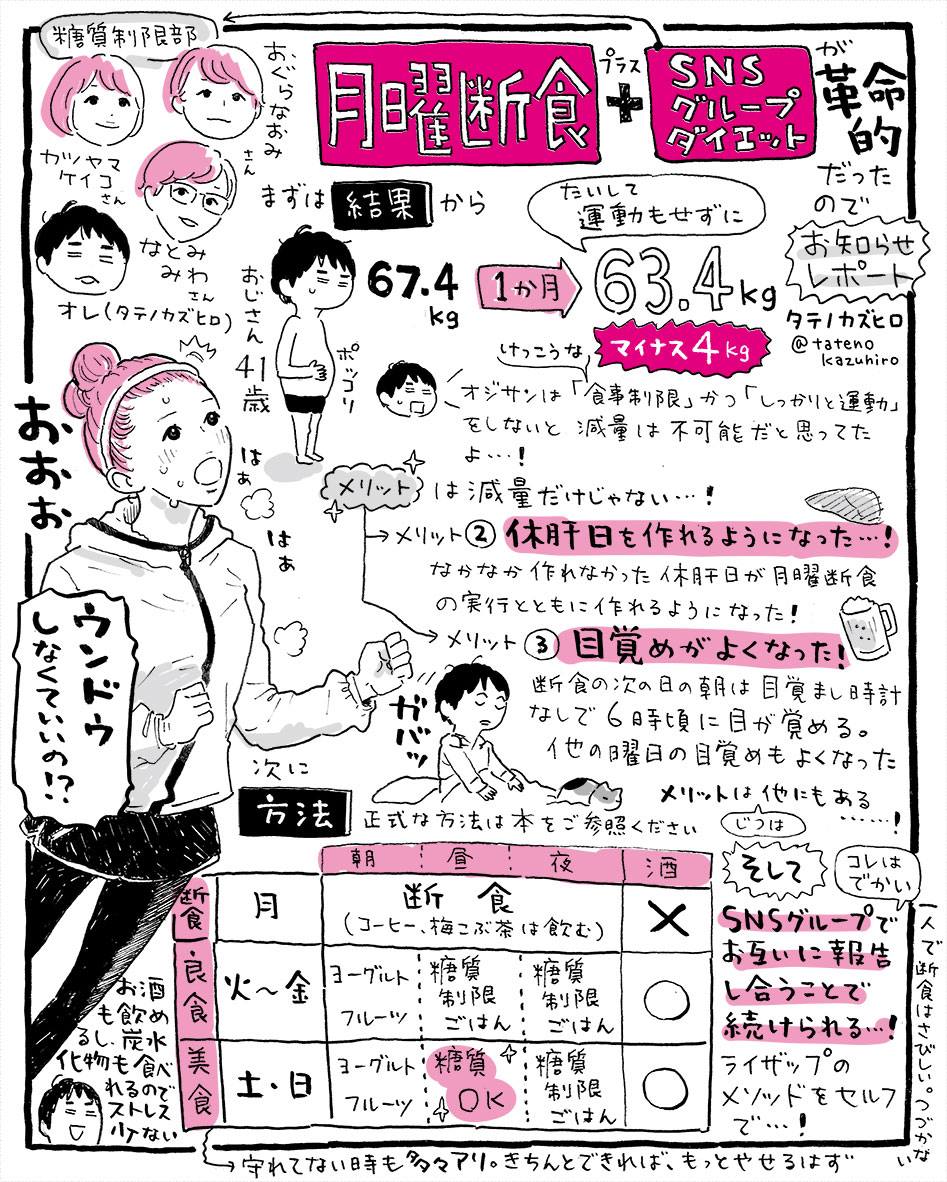 糖質制限部
カツヤマ
ケイコ
さん
おぐらなおみ
さん
なとみ
みわ
さん
オレ(タテノカズヒロ)
月曜断食
プラス
+
SNS
グループ
ダイエット
が
革命
的
だった
ので
お知らせ
レポート
タテノカズヒロ
@tateno
kazuhiro
まずは
結果
から
おじさん
41
歳
ポッコリ
67.4
kg
1か月
たいして
運動もせずに
63.4kg
けっこうな
マイナス4kg
オジサンは「食事制限」かつ「しっかりと運動」
をしないと減量は不可能だと思ってた
よ…!
おおぉ
はぁ
はぁ
ウンドゥ
しなくていいの!?
メリット
は減量だけじゃない…!
メリット②
休肝日を作れるようになった…!
なかなか作れなかった休肝日が月曜断食
の実行とともに作れるようになった!
メリット③
目覚めがよくなった!
断食の次の日の朝は目覚まし時計
なしで6時頃に目が覚める。
他の曜日の目覚めもよくなった
ガバッ
メリットは他にもある
……!
次に
方法
正式な方法は本をご参照ください
朝 昼 夜 酒
断食
月
断食
(コーヒー、梅こぶ茶は飲む)
×
良食
火〜金
ヨーグルト
フルーツ
糖質
制限
ごはん
糖質
制限
ごはん
○
美食
土・日
ヨーグルト
フルーツ
糖質
OK
糖質
制限
ごはん
○
お酒
も飲め
るし、炭水
化物も食べ
れるので
ストレス
少ない
守れてない時も多々アリ。きちんとできれば、もっとやせるはず
じつは
そして
コレは
でかい
SNSグループで
お互いに報告
し合うことで
続けられる…!
ライザップの
メソッドをセルフ
で…!
一人で断食はさびしい。つづかない